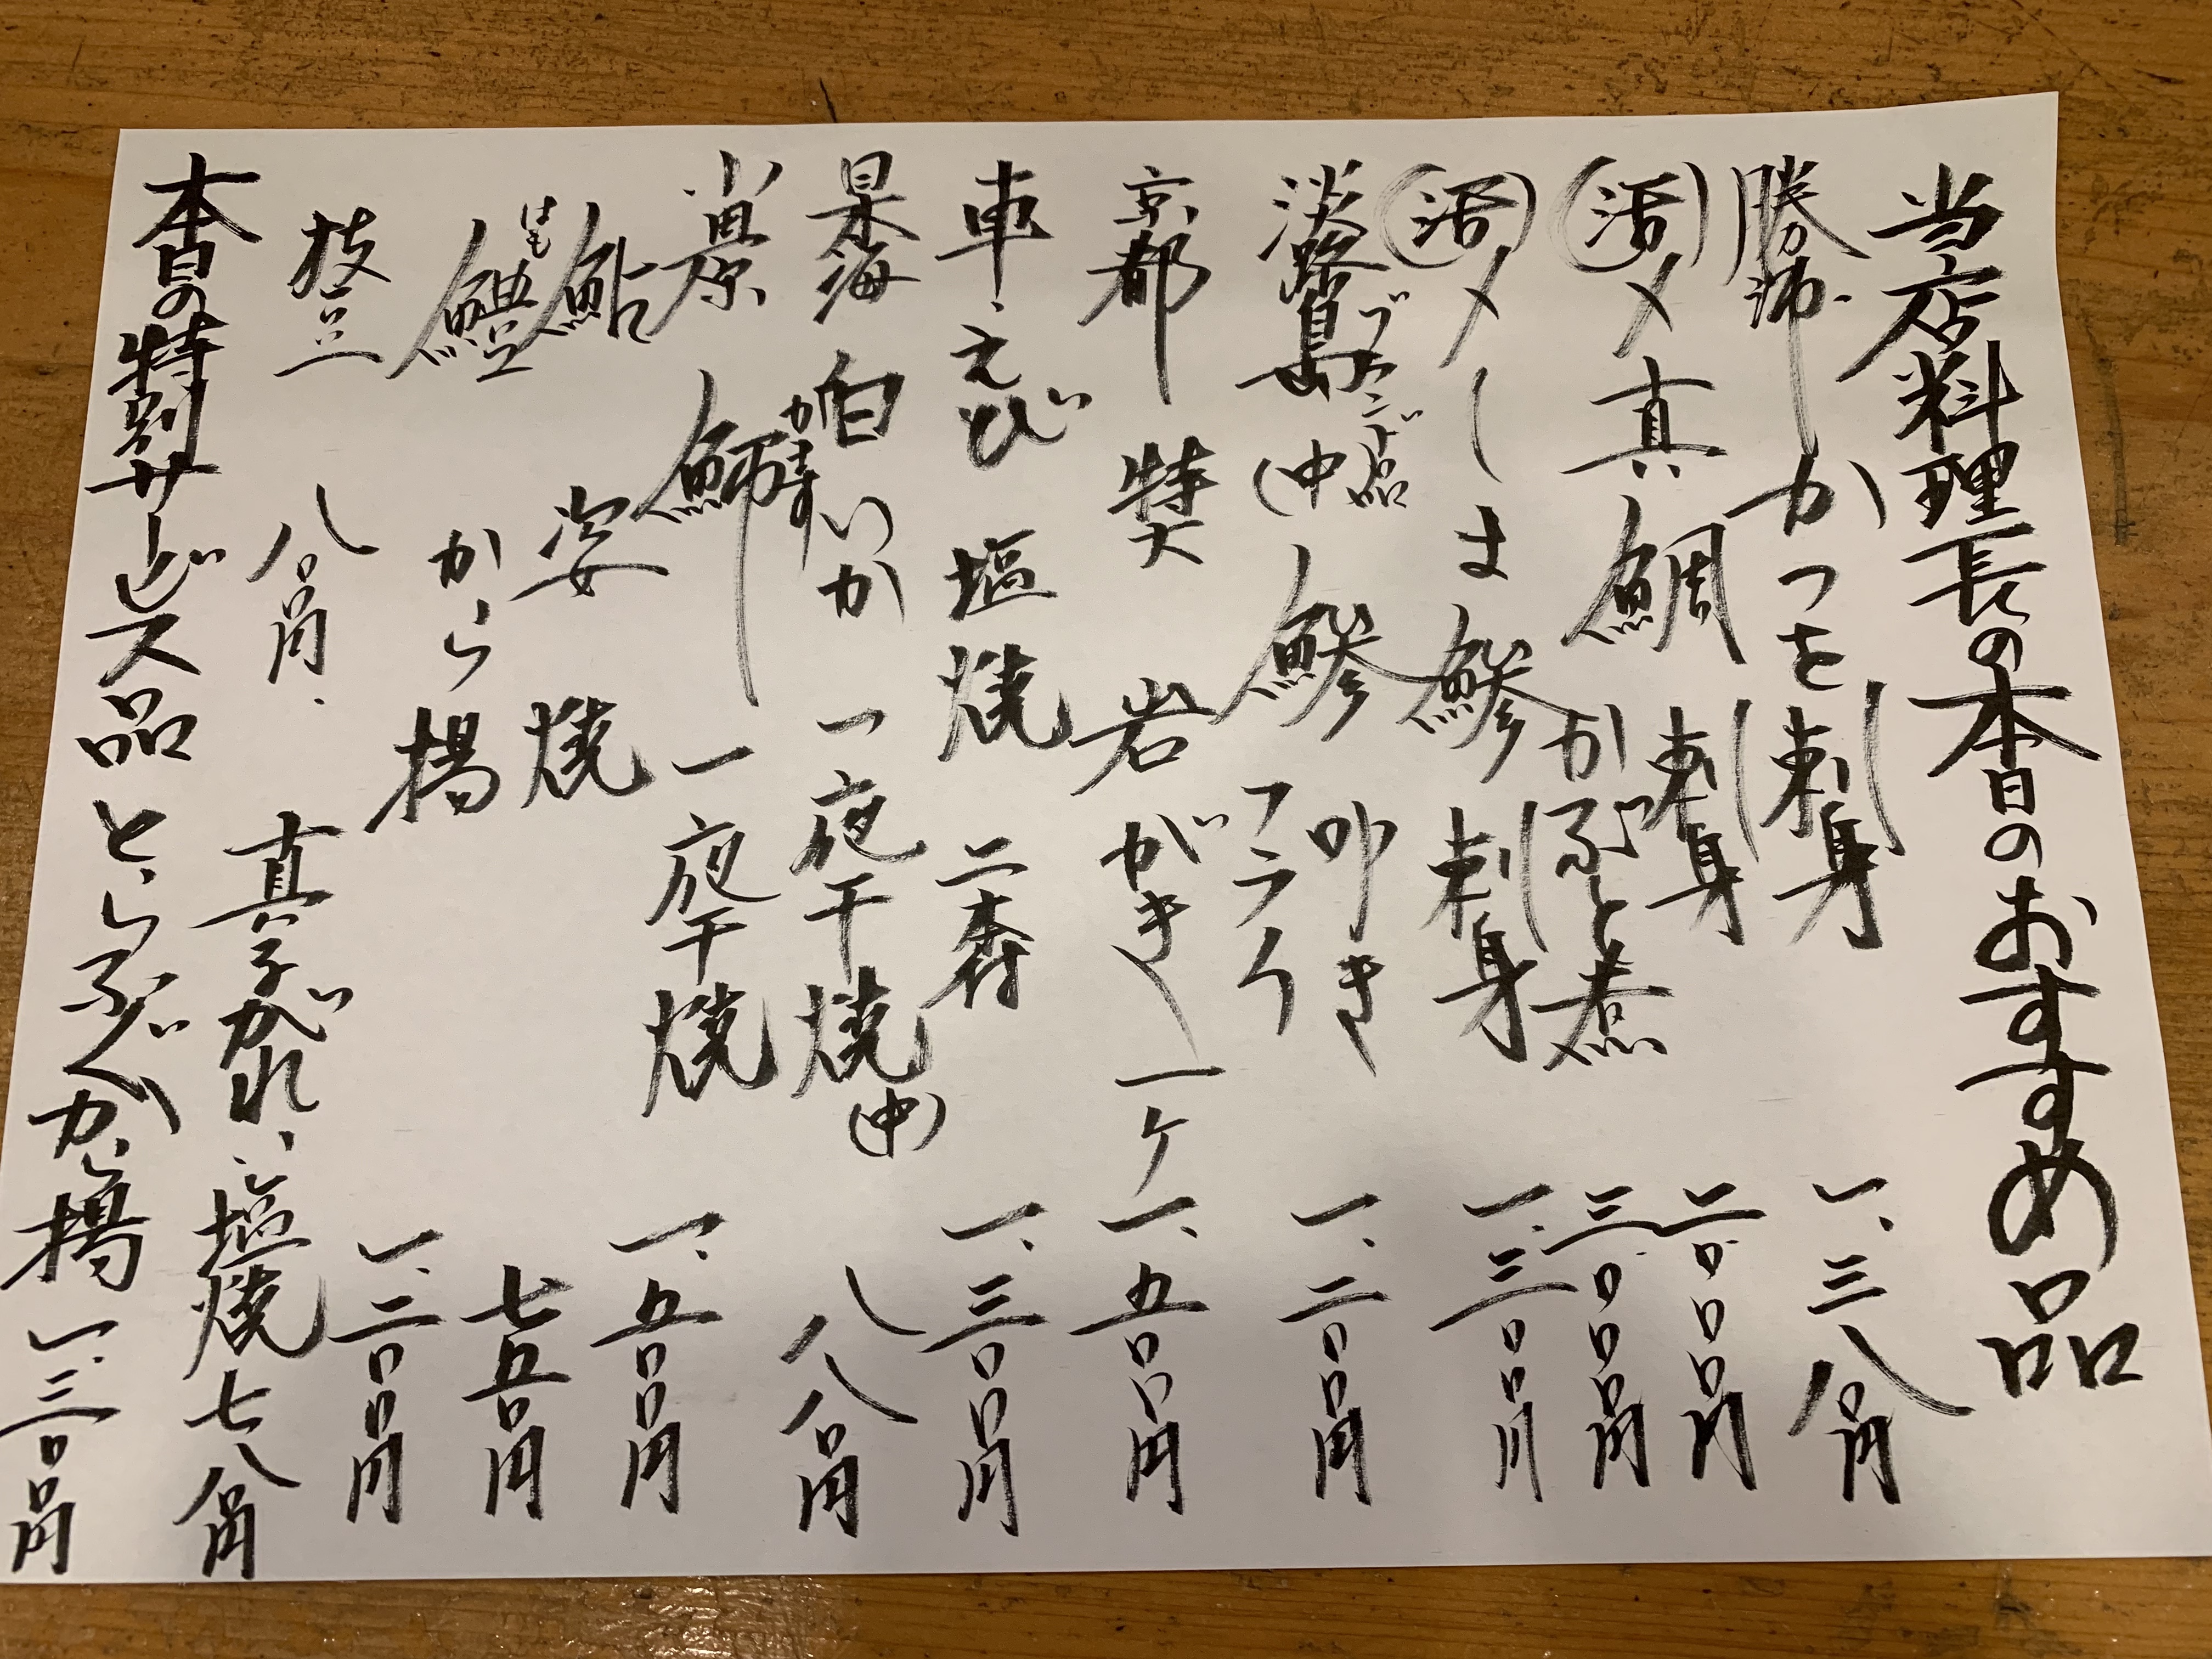 当店料理長の本日のおすすめ品
勝浦かつを刺身 一、三八〇円
活〆真鯛 刺身 二〇〇〇円
かぶと煮 三〇〇〇円
活〆しま鯵刺身 一、三〇〇円
淡路島 ブランド品 (中 鯵 叩き フライ 一、二〇〇円
京都 特大 岩がき 一ケ 一、五〇〇円
車えび 塩焼 二本付 一、三〇〇円
日本海 白いか 一夜干焼(中) 八八〇円
小田原 かます 一夜干焼 一、五〇〇円
鮎 姿焼 七五〇円
はも 鱧 から揚 一、二〇〇円
枝豆 八〇〇円
真子がれい塩焼 七八〇円
本日の特別サービス品 とらふぐから揚 一、三〇〇円